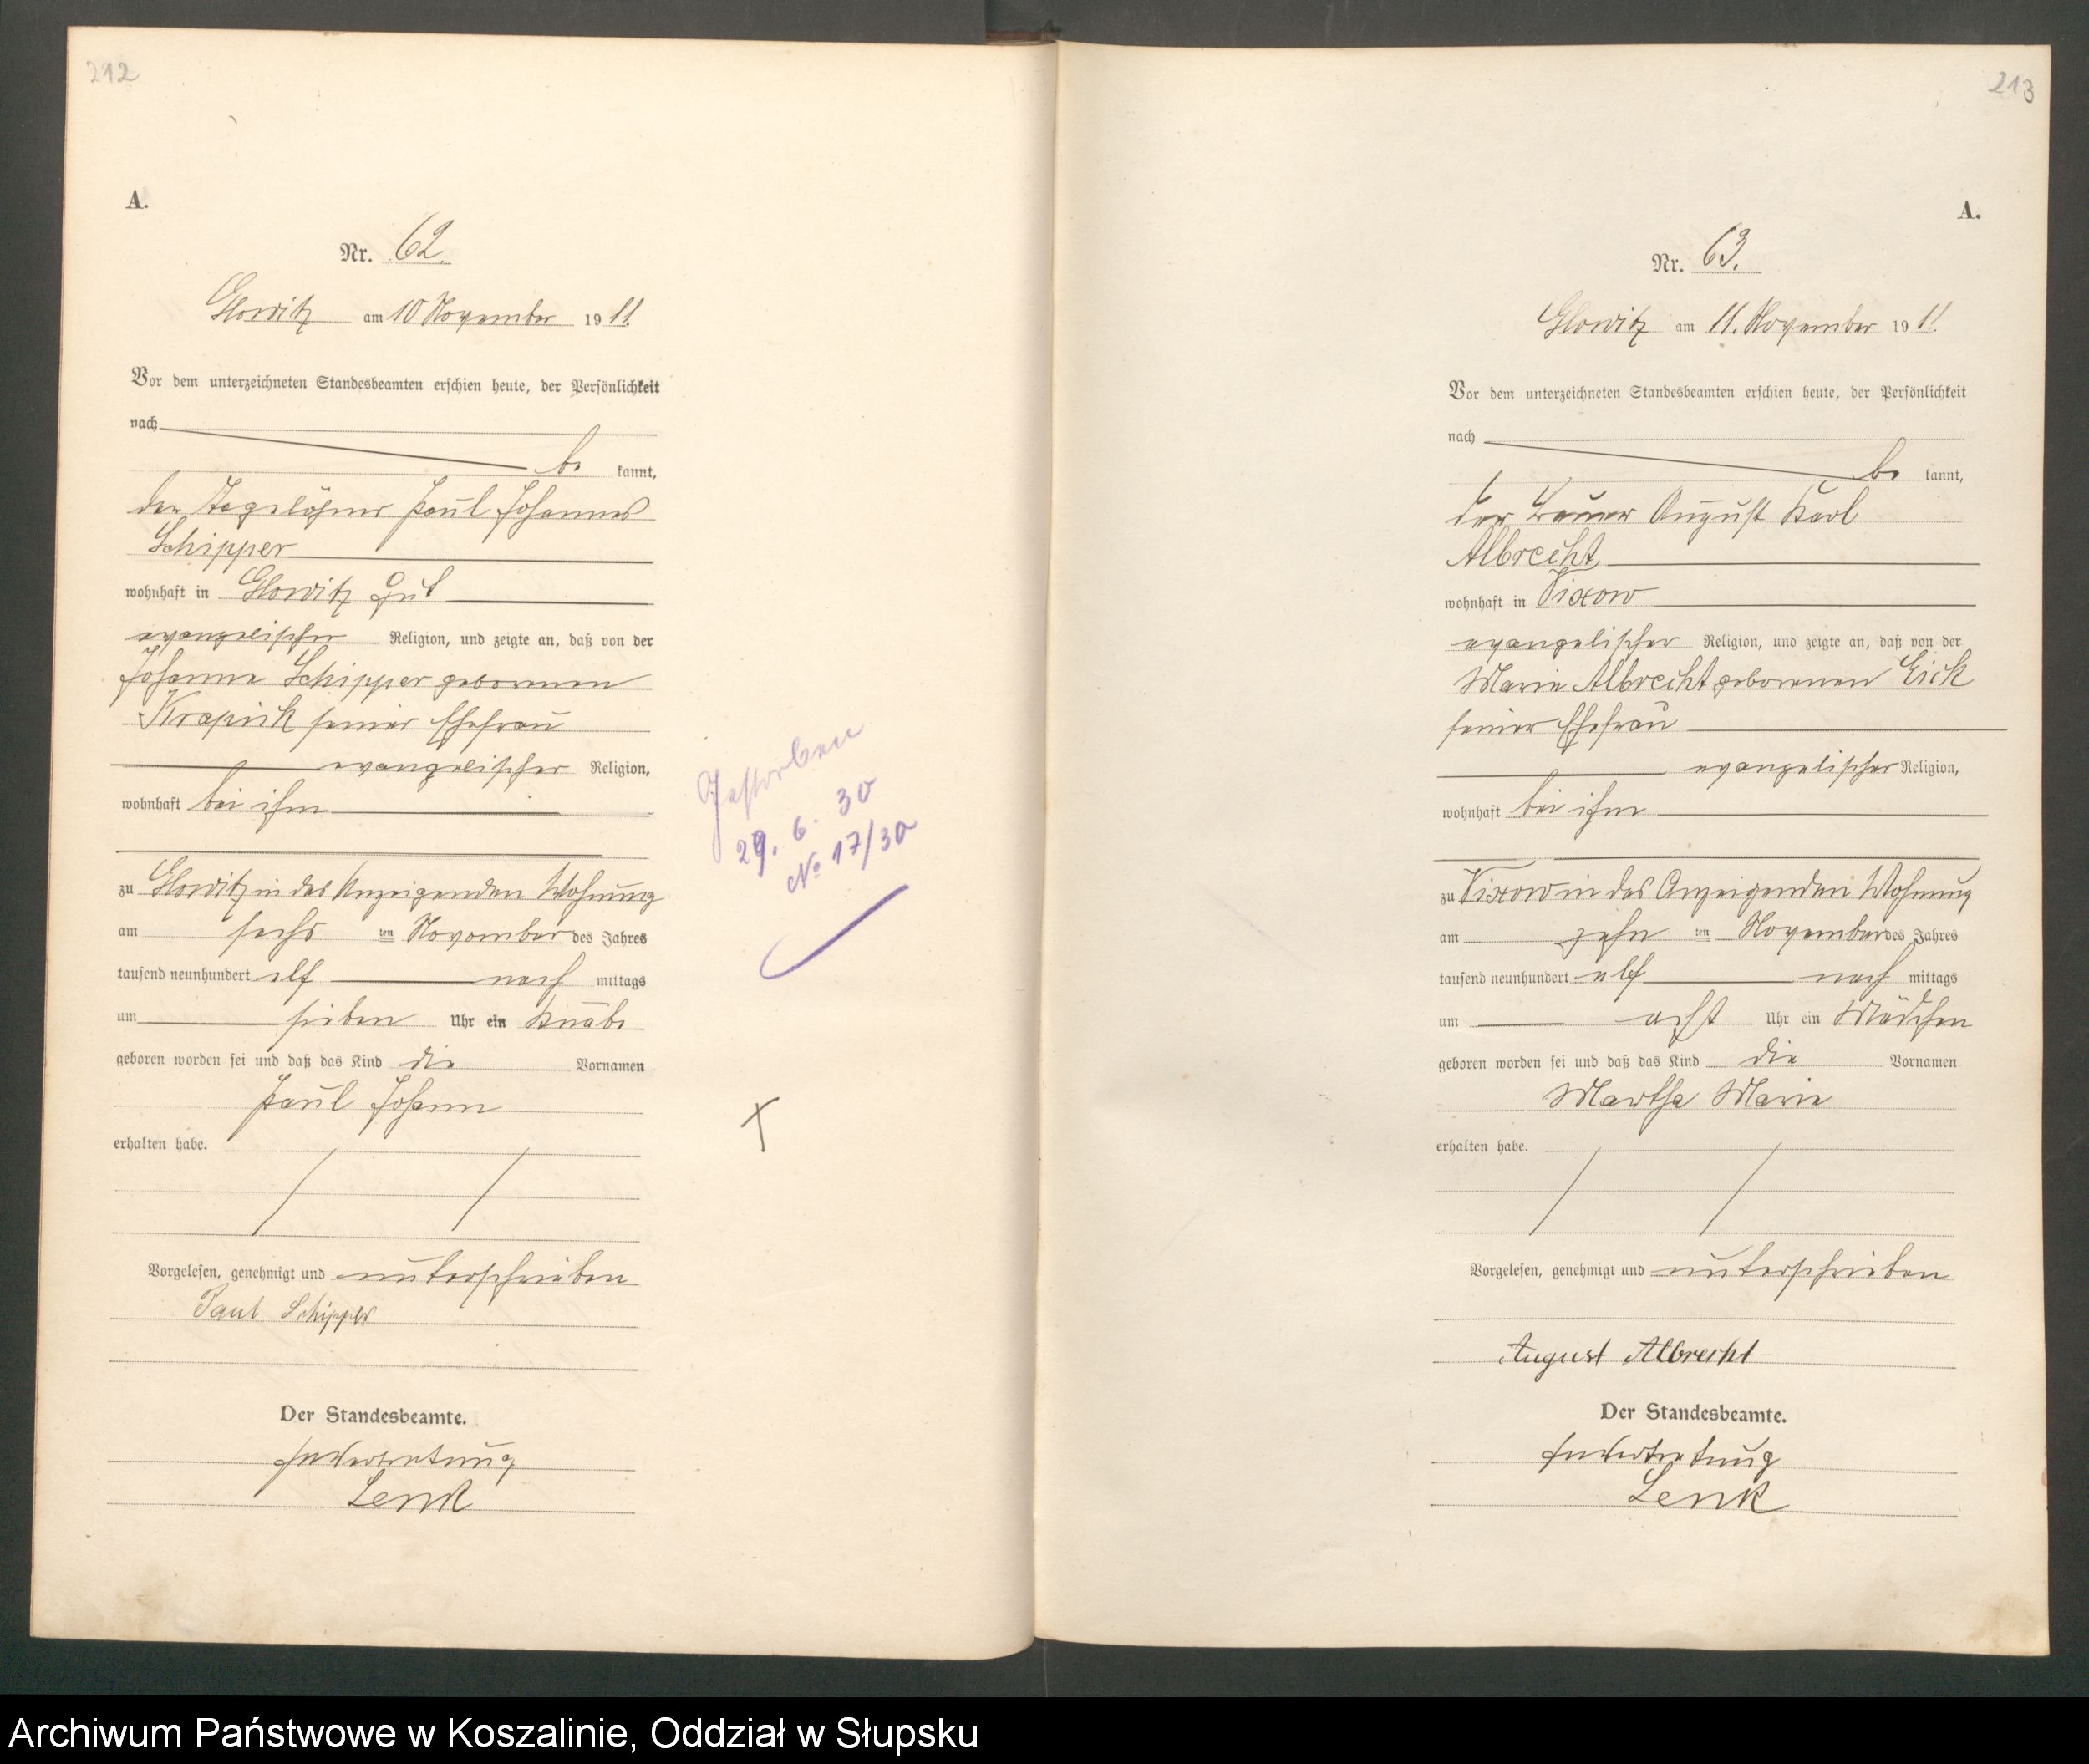 212
A.
Nr. 62.
Glowitz am 10 November 1911.
Vor dem unterzeichneten Standesbeamten erschien heute, der Persönlichkeit
nach
be kannt,
der Tagelöhner Paul Johannes
Schipper
wohnhaft in Glowitz Gut
evangelischer Religion, und zeigte an, daß von der
Johanna Schipper geborenen
Krapick seiner Ehefrau
evangelischer Religion,
wohnhaft bei ihm
zu Glowitz in des Anzeigenden Wohnung
am sechs ten November des Jahres
tausend neunhundert elf nach mittags
um sieben Uhr ein Knabe
geboren worden sei und daß das Kind die Vornamen
Paul Johann
erhalten habe.
Vorgelesen, genehmigt und unterschrieben
Paul Schipper
Der Standesbeamte.
In Vertretung
Lenk
Gestorben
29. 6. 30
No 17/30
213
A.
Nr. 63.
Glowitz am 11. November 1911.
Vor dem unterzeichneten Standesbeamten erschien heute, der Persönlichkeit
nach
be kannt,
der Bauer August Karl
Albrecht
wohnhaft in Vixow
evangelischer Religion, und zeigte an, daß von der
Marie Albrecht geborenen Eick
seiner Ehefrau
evangelischer Religion,
wohnhaft bei ihm
zu Vixow in des Anzeigenden Wohnung
am zehn ten November des Jahres
tausend neunhundert elf nach mittags
um acht Uhr ein Mädchen
geboren worden sei und daß das Kind die Vornamen
Martha Marie
erhalten habe.
Vorgelesen, genehmigt und unterschrieben
August Albrecht
Der Standesbeamte.
In Vertretung
Lenk
Archiwum Państwowe w Koszalinie, Oddział w Słupsku